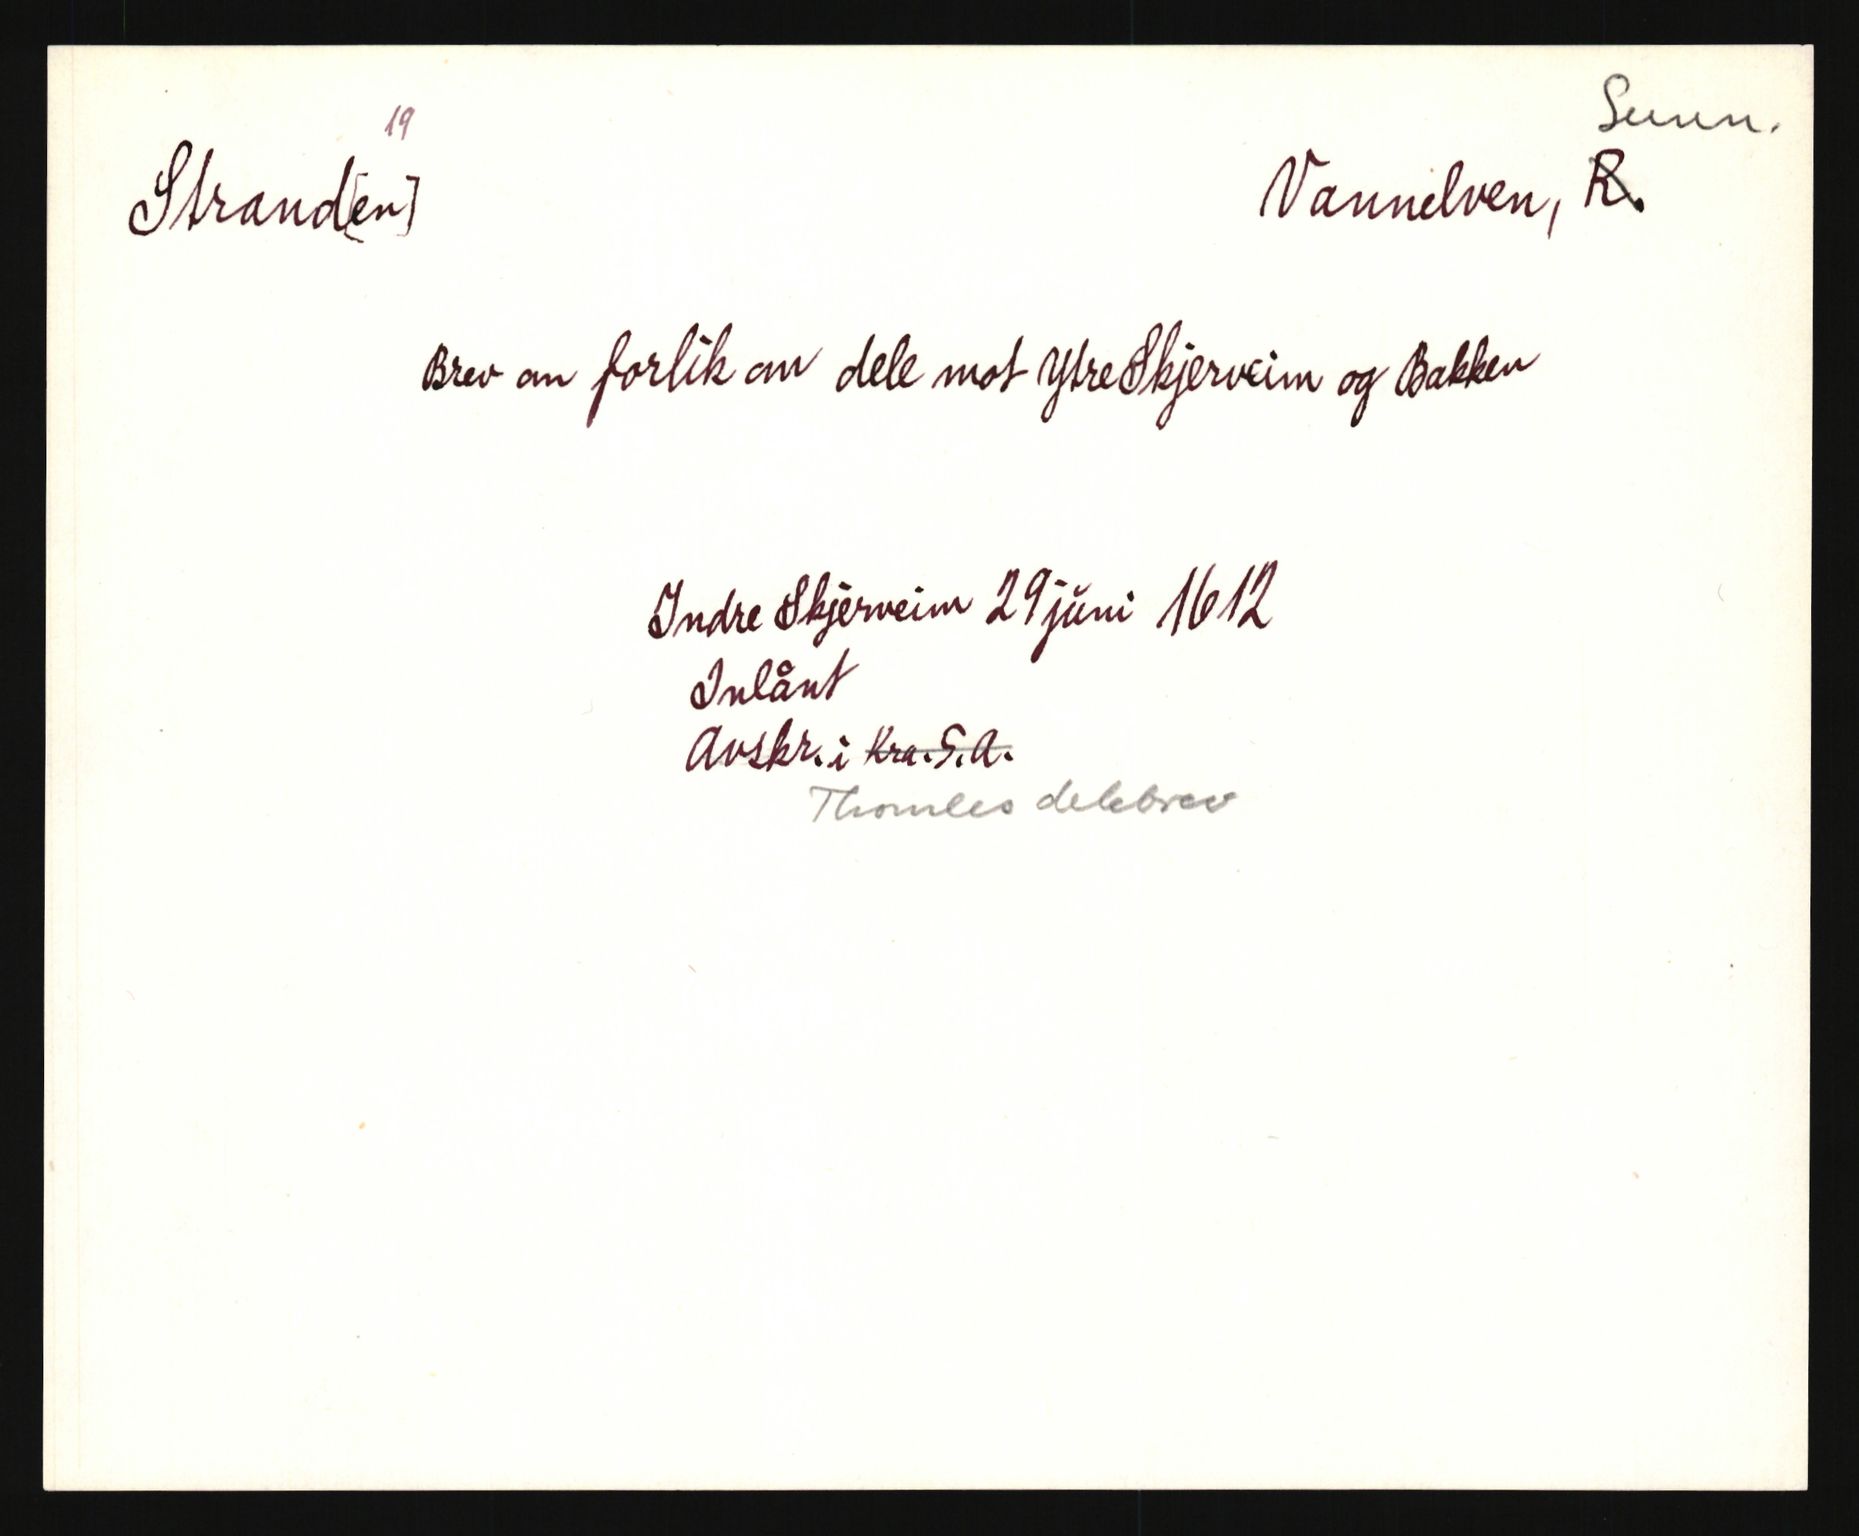 19
Sunn.
Strand[en]
Vannelven, R.
Brev om forlik om dele mot Ytre Skjerveim og Bakken
Indre Skjerveim 29 juni 1612
Inlånt
Avskr. i Kra. S. A.
Thomles delebrev